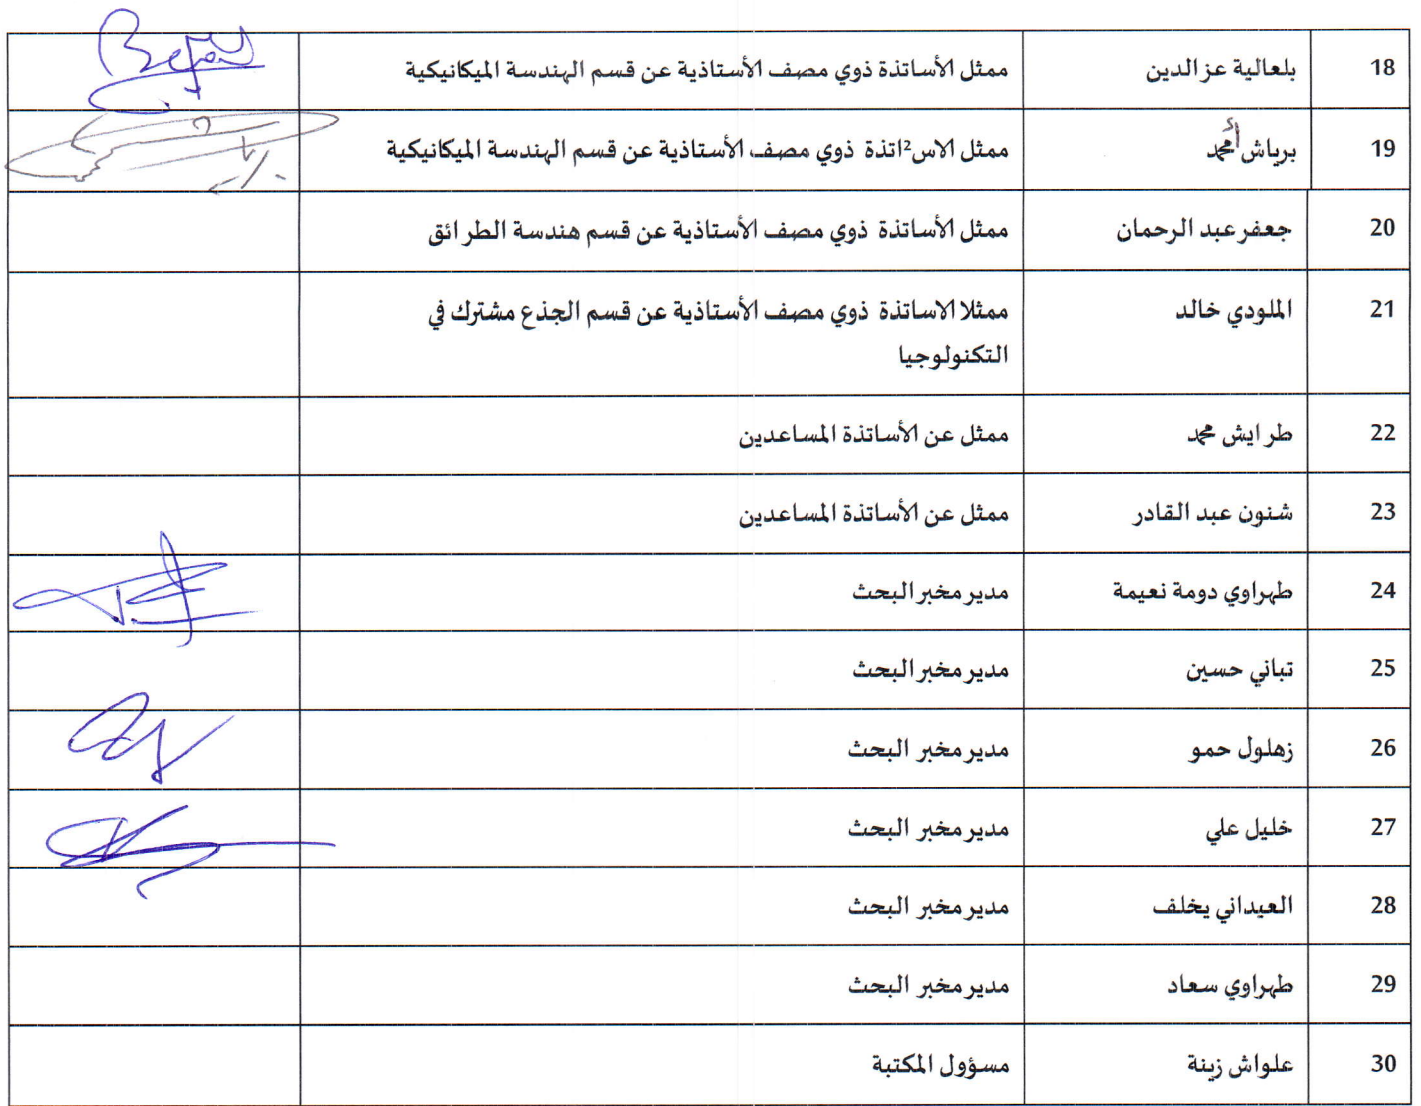 18 بلعالية عز الدين ممثل الأساتذة ذوي مصف الأستاذية عن قسم الهندسة الميكانيكية
19 برياش أمحمد ممثل الاس²اتذة ذوي مصف الأستاذية عن قسم الهندسة الميكانيكية
20 جعفر عبد الرحمان ممثل الأساتذة ذوي مصف الأستاذية عن قسم هندسة الطرائق
21 الملودي خالد ممثلا الاساتذة ذوي مصف الأستاذية عن قسم الجذع مشترك في
التكنولوجيا
22 طرايش محمد ممثل عن الأساتذة المساعدين
23 شنون عبد القادر ممثل عن الأساتذة المساعدين
24 طهراوي دومة نعيمة مدير مخبر البحث
25 تباني حسين مدير مخبر البحث
26 زهلول حمو مدير مخبر البحث
27 خليل علي مدير مخبر البحث
28 العيداني يخلف مدير مخبر البحث
29 طهراوي سعاد مدير مخبر البحث
30 علواش زينة مسؤول المكتبة